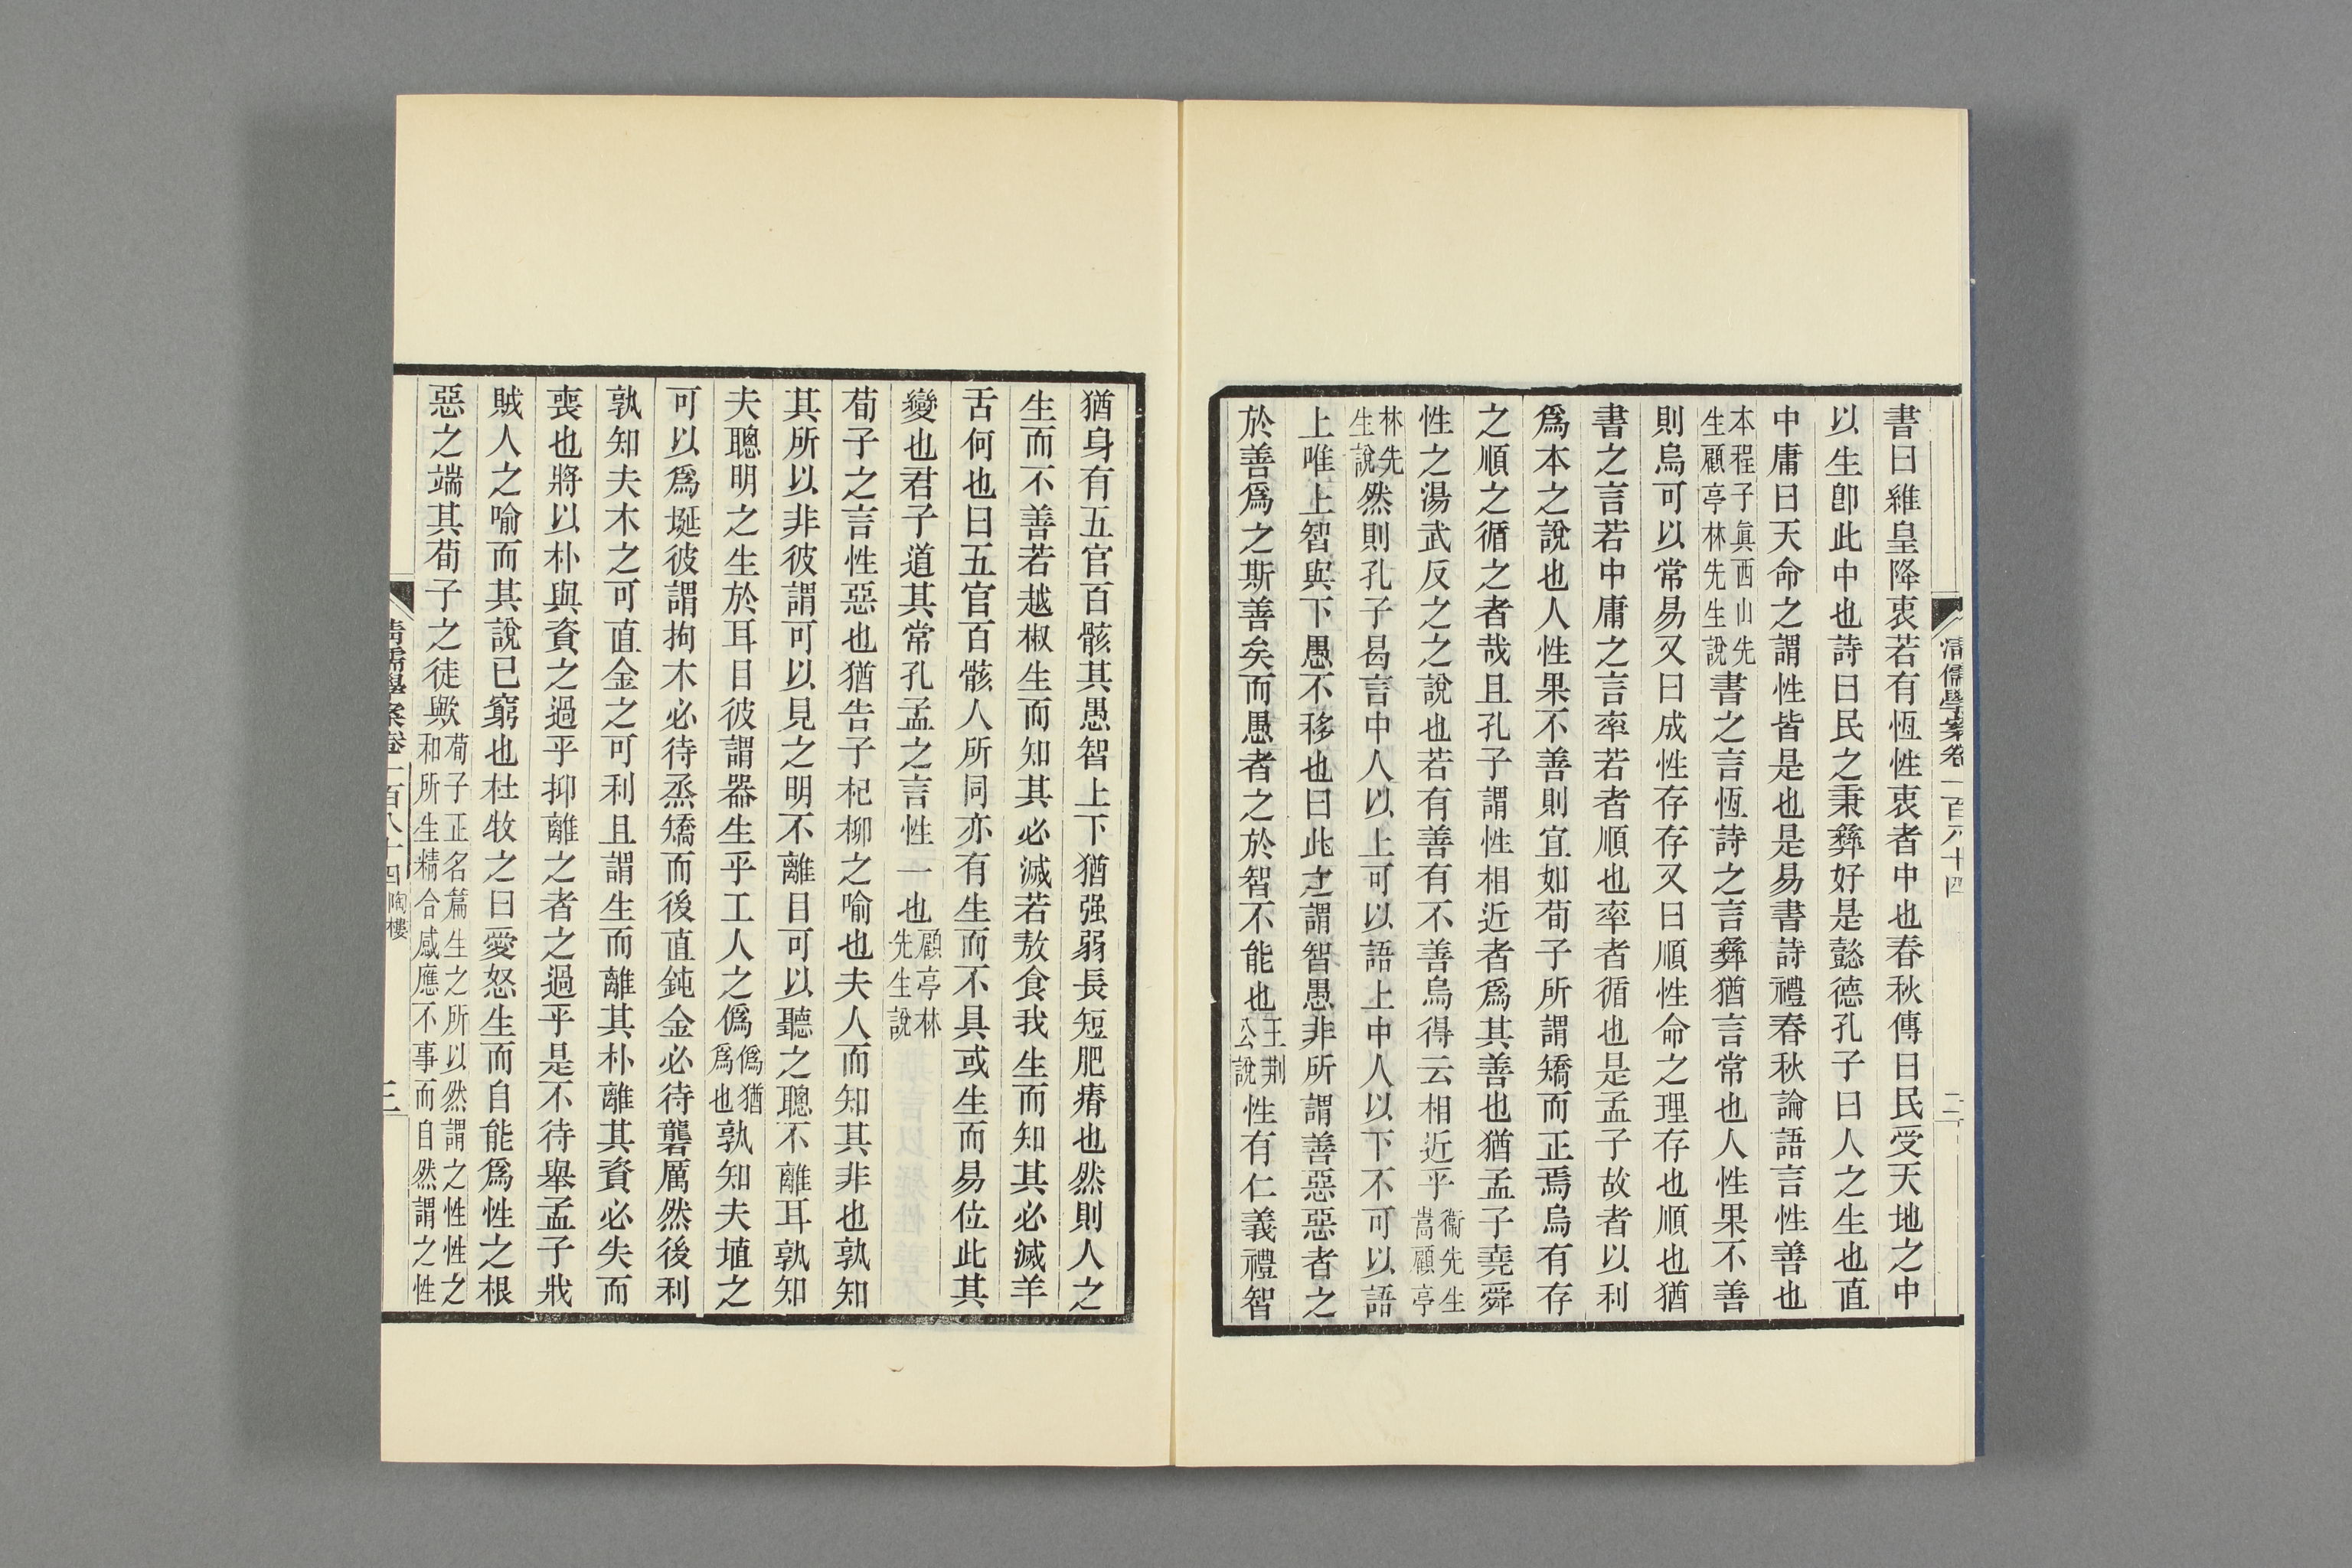 清儒學案卷一百八十四 二
書曰維皇降衷若有恆性衷者中也春秋傳曰民受天地之中
以生卽此中也詩曰民之秉彝好是懿德孔子曰人之生也直
中庸曰天命之謂性皆是也是易書詩禮春秋論語言性善也
本程子眞西山先生顧亭林先生說書之言恆詩之言彝猶言常也人性果不善
則烏可以常易又曰成性存存又曰順性命之理存也順也猶
書之言若中庸之言率若者順也率者循也是孟子故者以利
爲本之說也人性果不善則宜如荀子所謂矯而正焉烏有存
之順之循之者哉且孔子謂性相近者爲其善也猶孟子堯舜
性之湯武反之之說也若有善有不善烏得云相近乎衞先生嵩顧亭
林先生說然則孔子曷言中人以上可以語上中人以下不可以語
上唯上智與下愚不移也曰此之謂智愚非所謂善惡惡者之
於善爲之斯善矣而愚者之於智不能也王荆公說性有仁義禮智
猶身有五官百骸其愚智上下猶强弱長短肥瘠也然則人之
生而不善若越椒生而知其必滅若敖食我生而知其必滅羊
舌何也曰五官百骸人所同亦有生而不具或生而易位此其
變也君子道其常孔孟之言性一也顧亭林先生說
荀子之言性惡也猶告子杞柳之喻也夫人而知其非也孰知
其所以非彼謂可以見之明不離目可以聽之聰不離耳孰知
夫聰明之生於耳目彼謂器生乎工人之僞僞猶爲也孰知夫埴之
可以爲埏彼謂拘木必待烝矯而後直鈍金必待礱厲然後利
孰知夫木之可直金之可利且謂生而離其朴離其資必失而
喪也將以朴與資之過乎抑離之者之過乎是不待舉孟子戕
賊人之喻而其說已窮也杜牧之曰愛怒生而自能爲性之根
惡之端其荀子之徒歟荀子正名篇生之所以然謂之性性之和所生精合感應不事而自然謂之性
清儒學案卷一百八十四 陶樓 三